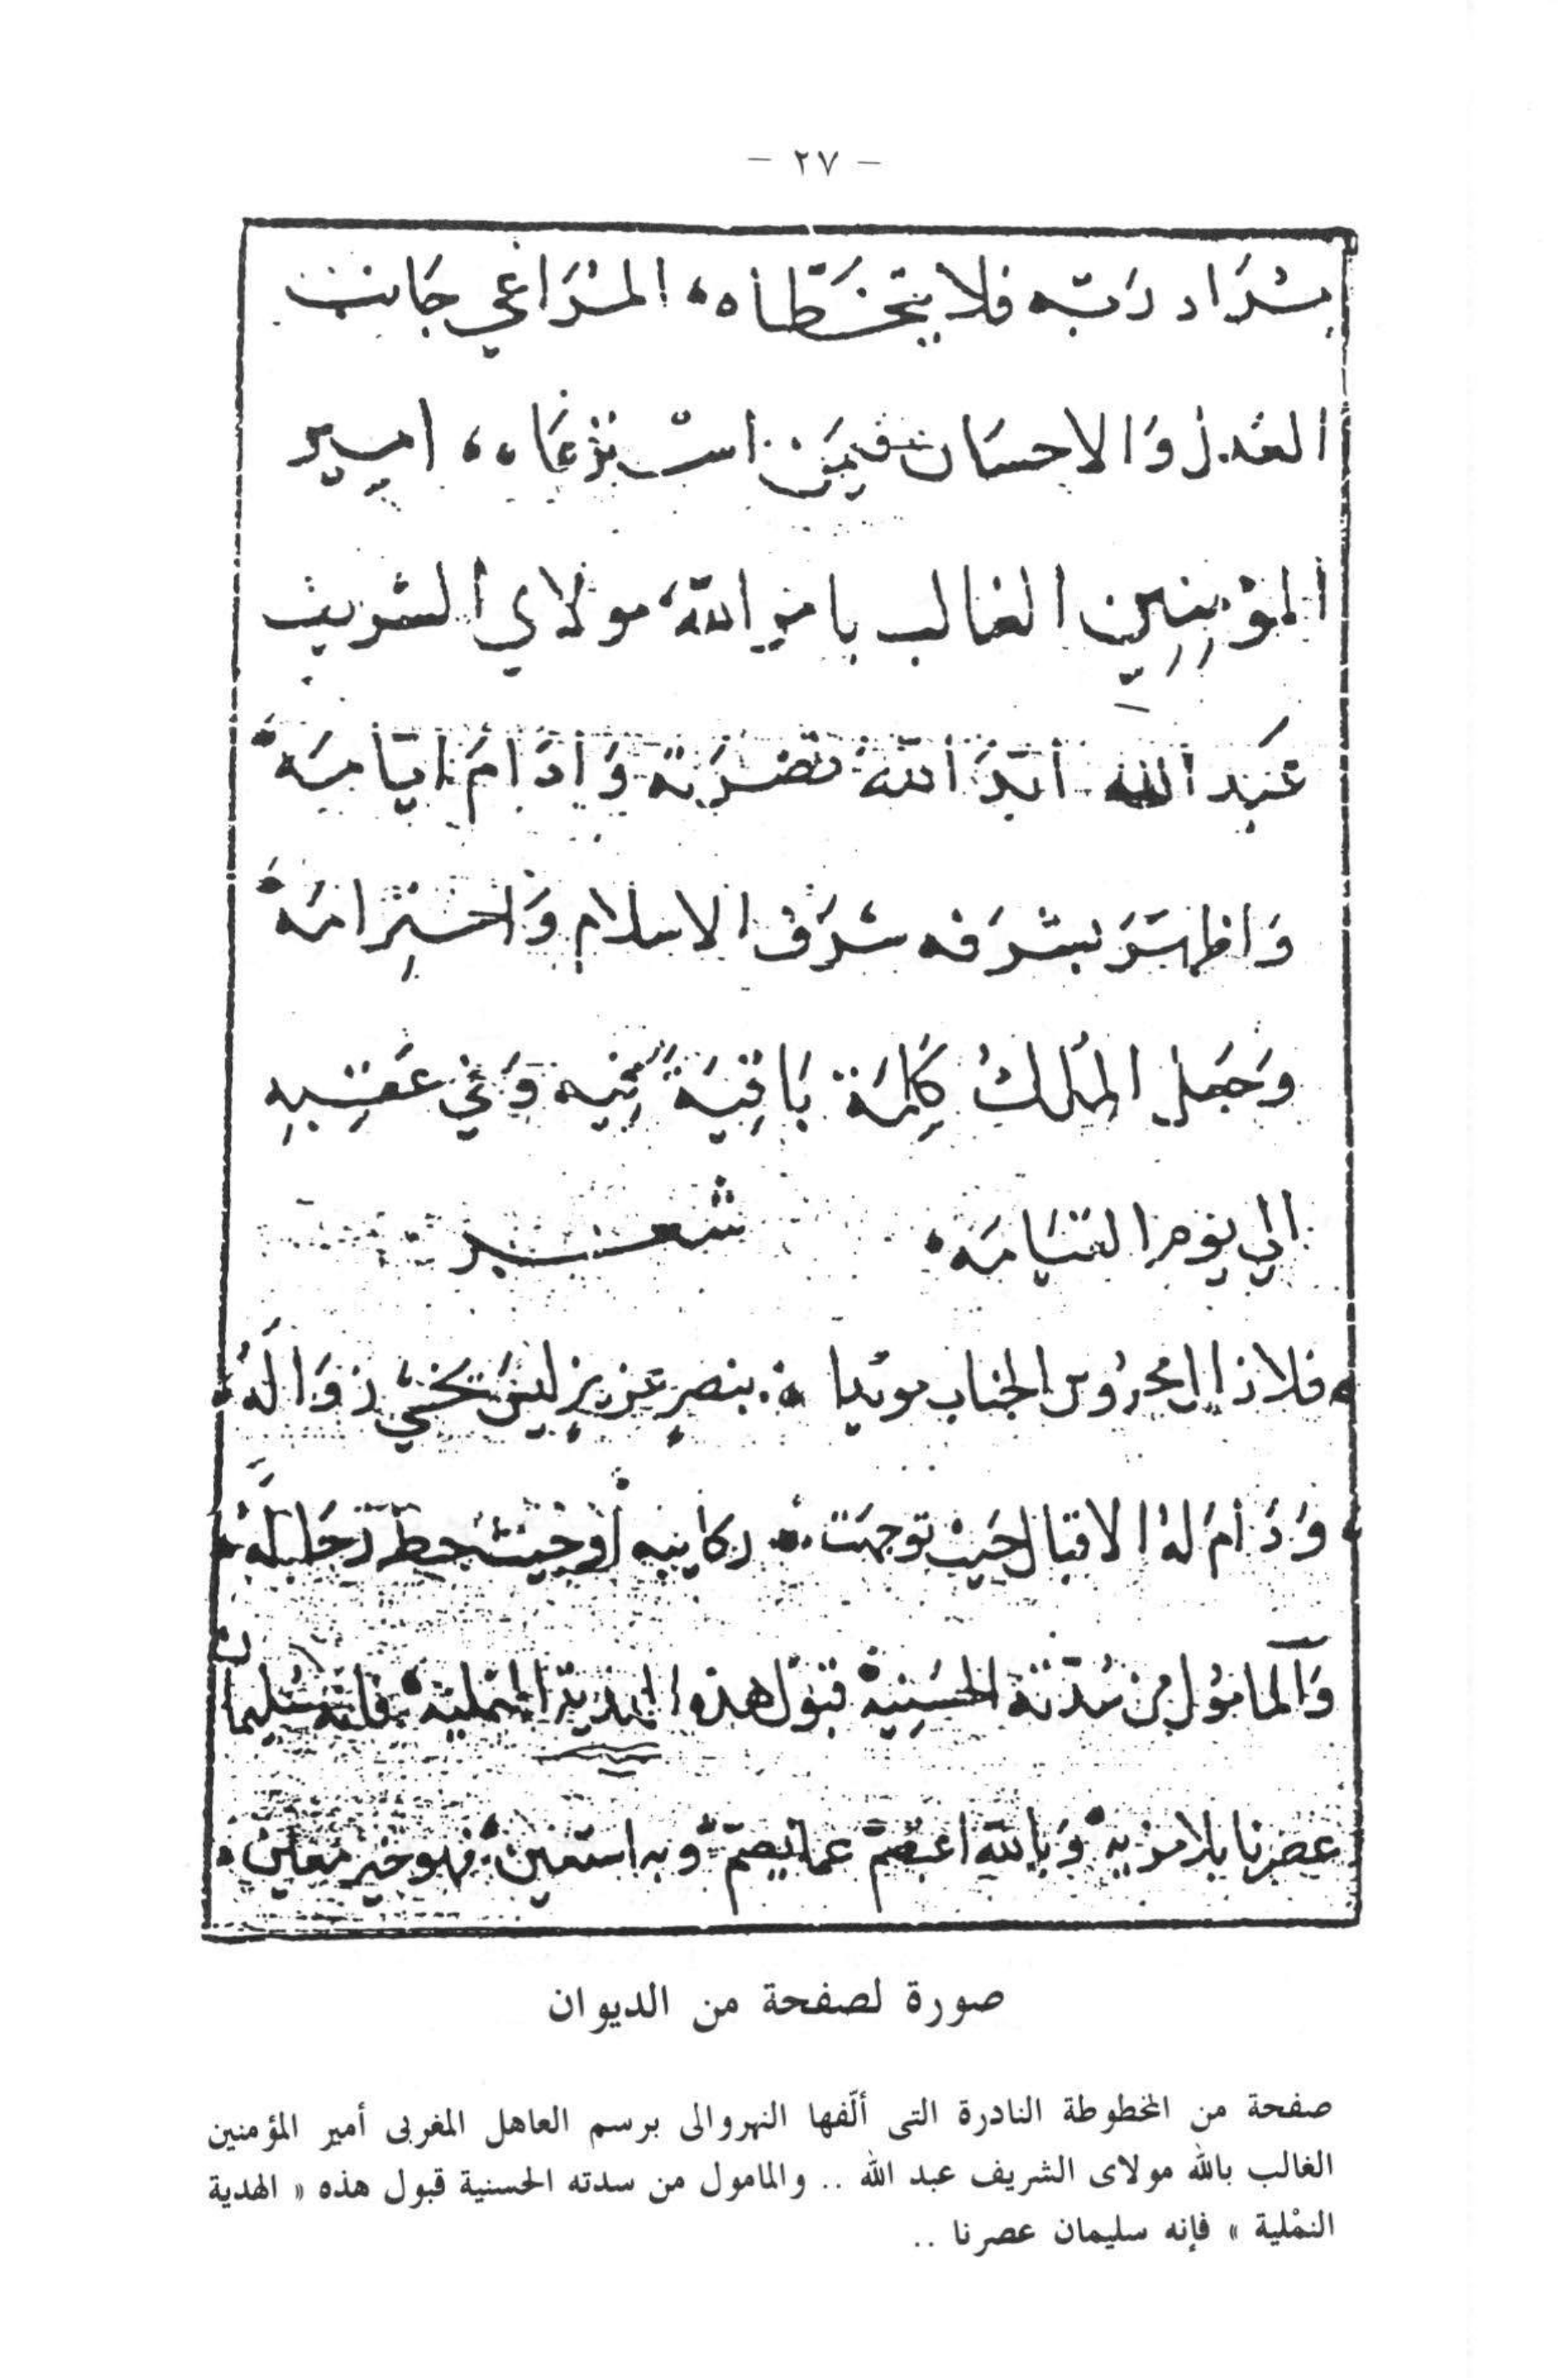 - ٢٧ -
بمُرَاد رَبّه فلا يتخَطّاه، المُرَاعي جَانب
العَدل وَالاحسَان فيمَن استرعَاه، امير
المؤمِنِين الغالب بامر الله، مولاي الشريف
عَبد الله أيّدَ اللهُ نصْرَه وَأدَامَ ايّامَه
وَاظهَرَ بشرَفه شرَف الاسلام وَاحتِرامَه
وَجَعَل المُلكُ كَلِمَة بَاقِيَةً فِيه وَفي عَقِبِهِ
الي يوم القيَامَه، شعر
فلا زال محرُوس الجناب مويدا بنصرٍ عزيزٍ ليسَ يخشي زوَالَهُ
وَدَامَ لهُ الاقبال حَيث توجهَت ركايبه أو حَيث حط رَحَالَهُ
وَالمامُول من سُدّته الحَسَنِيه قبُول هذه الهَديّة النمليه فانه سُليمان
عصْرنا بلا مزيه وَبالله اعتصم عما يصِم وبه استعين فهو خير معين
صورة لصفحة من الديوان
صفحة من المخطوطة النادرة التى ألّفها النهروالى برسم العاهل المغربى أمير المؤمنين
الغالب بالله مولاى الشريف عبد الله .. والمامول من سدته الحسنية قبول هذه « الهدية
النمْلية » فإنه سليمان عصرنا ..